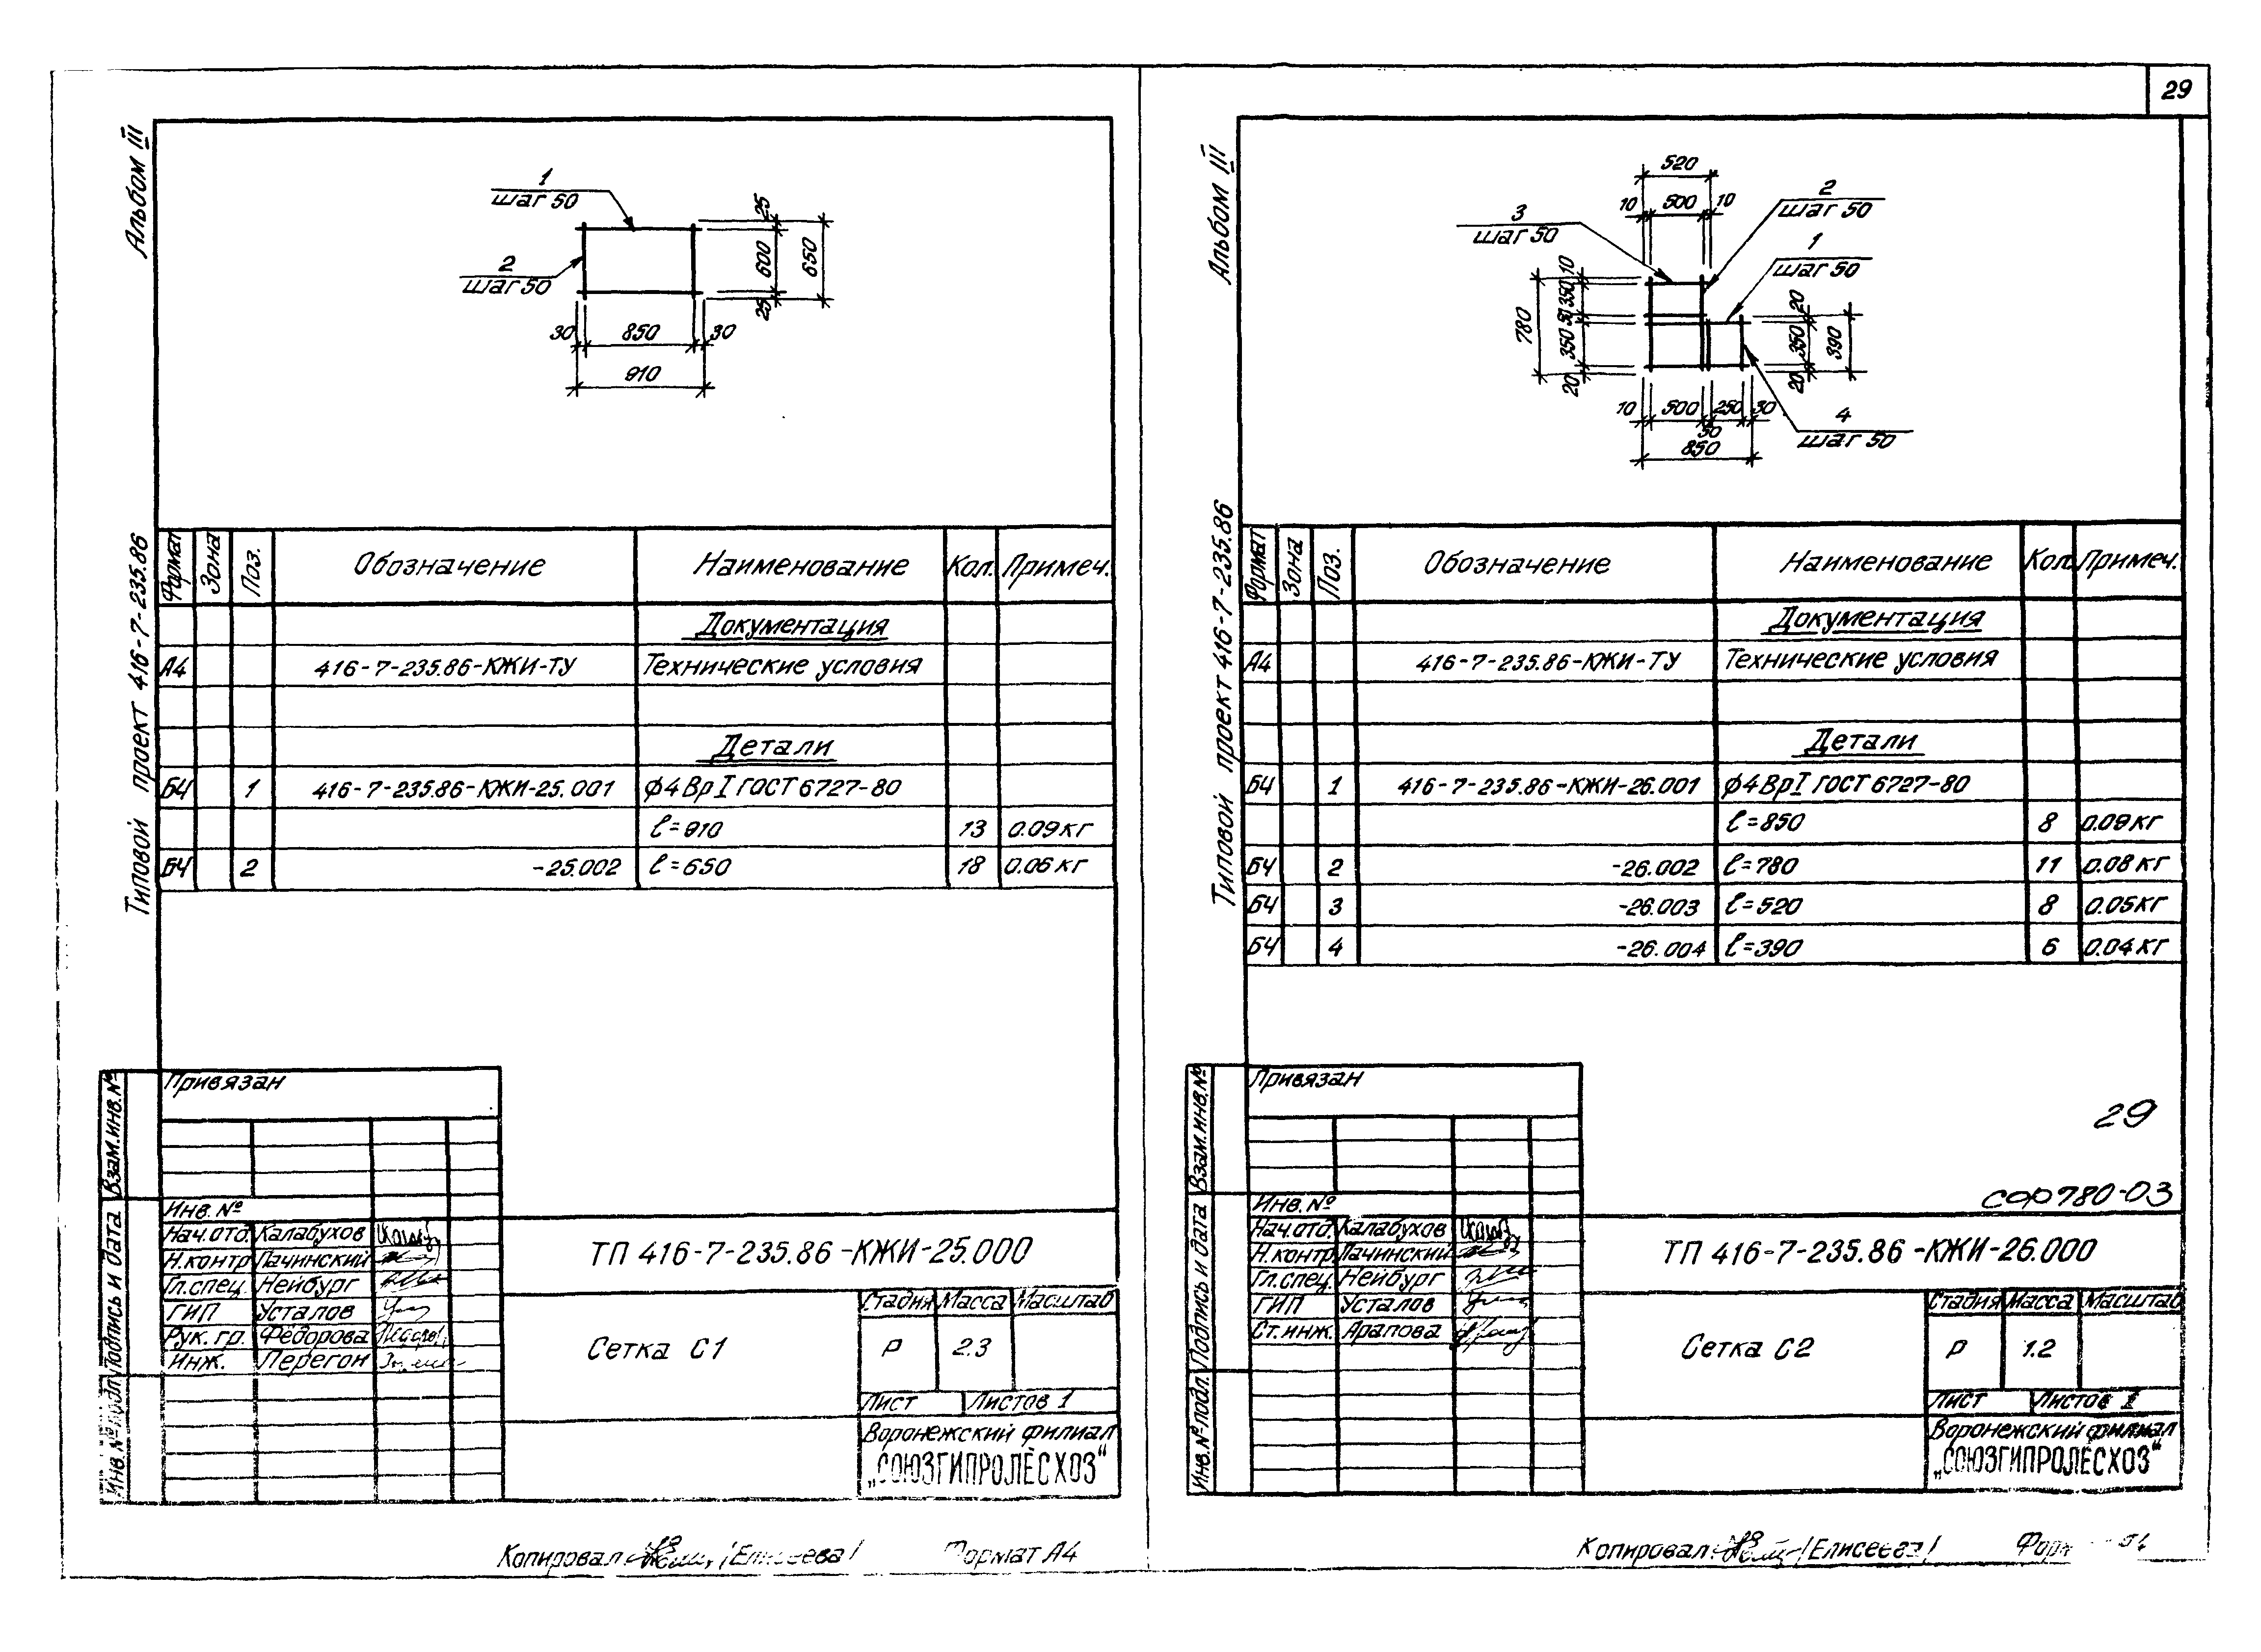 29
Альбом III
Типовой проект 416-7-235.86
1
шаг 50
2
шаг 50
25
600
650
25
30 850 30
910
Формат Зона Поз. Обозначение Наименование Кол. Примеч.
Документация
А4 416-7-235.86-КЖИ-ТУ Технические условия
Детали
БЧ 1 416-7-235.86-КЖИ-25.001 ϕ4ВрI ГОСТ 6727-80
ℓ=910 13 0.09кг
БЧ 2 -25.002 ℓ=650 18 0.06кг
Привязан
Инв. №
Взам.инв.№
Подпись и дата
Инв.№подл.
Нач.отд. Калабухов
Н.контр. Пачинский
Гл.спец. Нейбург
ГИП Усталов
Рук. гр. Фёдорова
Инж. Перегон
ТП 416-7-235.86-КЖИ-25.000
Сетка С1
Стадия Масса Масштаб
Р 2.3
Лист Листов 1
Воронежский филиал
„СОЮЗГИПРОЛЕСХОЗ“
Копировал /Елисеева/ Формат А4
Альбом III
Типовой проект 416-7-235.86
520
10 500 10
2
шаг 50
3
шаг 50
1
шаг 50
10
350
50
350
20
780
20
350
20
390
10 500 250 30
50
850
4
шаг 50
Формат Зона Поз. Обозначение Наименование Кол. Примеч.
Документация
А4 416-7-235.86-КЖИ-ТУ Технические условия
Детали
БЧ 1 416-7-235.86-КЖИ-26.001 ϕ4ВрI ГОСТ 6727-80
ℓ=850 8 0.09кг
БЧ 2 -26.002 ℓ=780 11 0.08кг
БЧ 3 -26.003 ℓ=520 8 0.05кг
БЧ 4 -26.004 ℓ=390 6 0.04кг
Привязан
29
СФ780-03
Инв. №
Взам.инв.№
Подпись и дата
Инв.№подл.
Нач.отд. Калабухов
Н.контр. Пачинский
Гл.спец. Нейбург
ГИП Усталов
Ст.инж. Арапова
ТП 416-7-235.86-КЖИ-26.000
Сетка С2
Стадия Масса Масштаб
Р 1.2
Лист Листов 1
Воронежский филиал
„СОЮЗГИПРОЛЕСХОЗ“
Копировал /Елисеева/